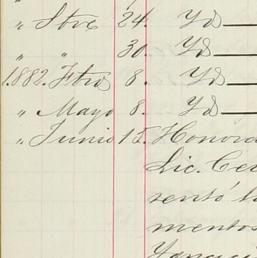 " Stbre 24. Yd
" " 30. Yd
1882. Fbro 8. Yd
" Mayo 8. Yd
" Junio 15. Honora
Lic. Cer
sentó la
mentos